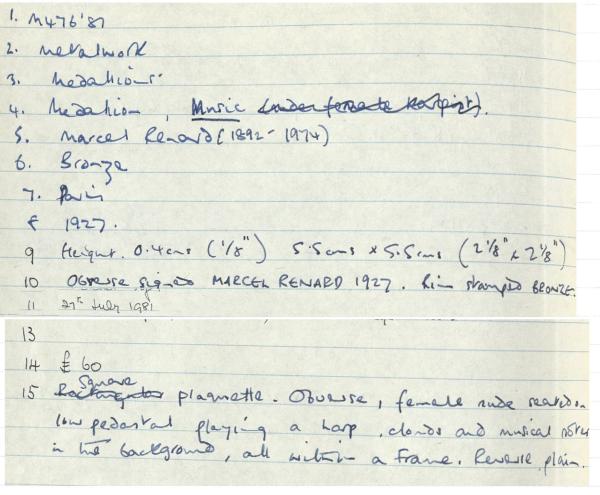 1. M476'81
2. Metalwork
3. Medallions
4. Medallion, Music (nude female harpist).
5. Marcel Renard (1892-1974)
6. Bronze
7. Paris
8 1927.
9 Height. 0.4cms (1/8") 5.5cms x 5.5cms (2 1/8" x 2 1/8")
10 Obverse signed MARCEL RENARD 1927. Rim stamped BRONZE.
11 27th July 1981
13
14 £60
Square
15 Rectangular plaquette. Obverse, female nude seated on
low pedestal playing a harp, clouds and musical notes
in the background, all within a frame. Reverse, plain.